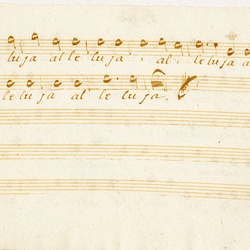 luja alleluja. al. leluja a
leluja al' leluja.